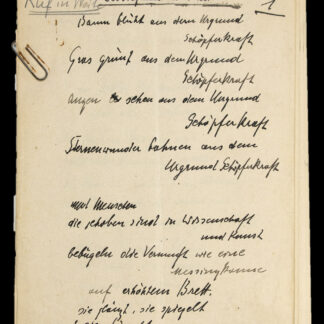 Ruf in
1
Baum blüht aus dem Urgrund
Schöpferkraft
Gras grünt aus dem Urgrund
Schöpferkraft
Augen sehen aus dem Urgrund
Schöpferkraft
Sternenwunder bahnen aus dem
Urgrund Schöpferkraft
und Menschen
die sind in Wissenschaft
und Kunst
bebügeln die Vernunft wie eine
auf erhöhtem Brett.
sie glänzt, sie spiegelt